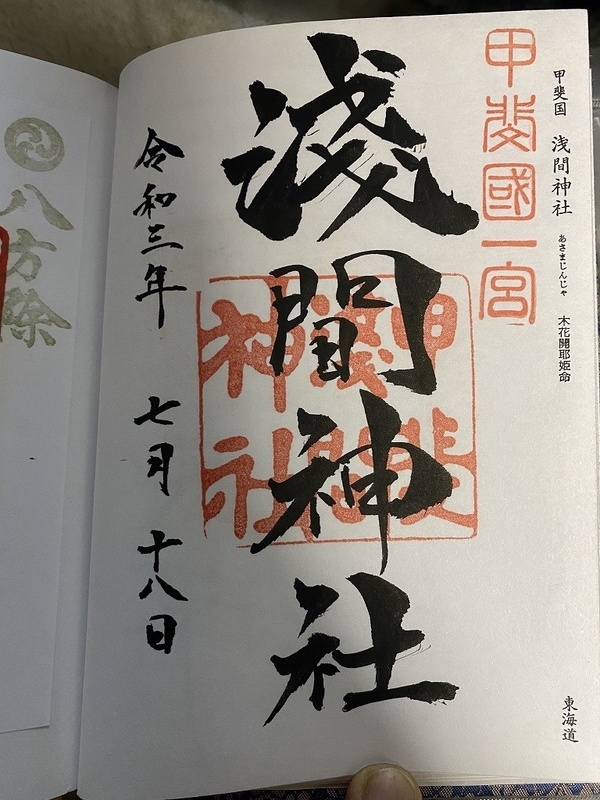 甲斐国 浅間神社 あさまじんじゃ 木花開耶姫命
東海道
甲斐國一宮
淺間神社
甲斐
淺間
神社
令和三年 七月 十八日
八方除